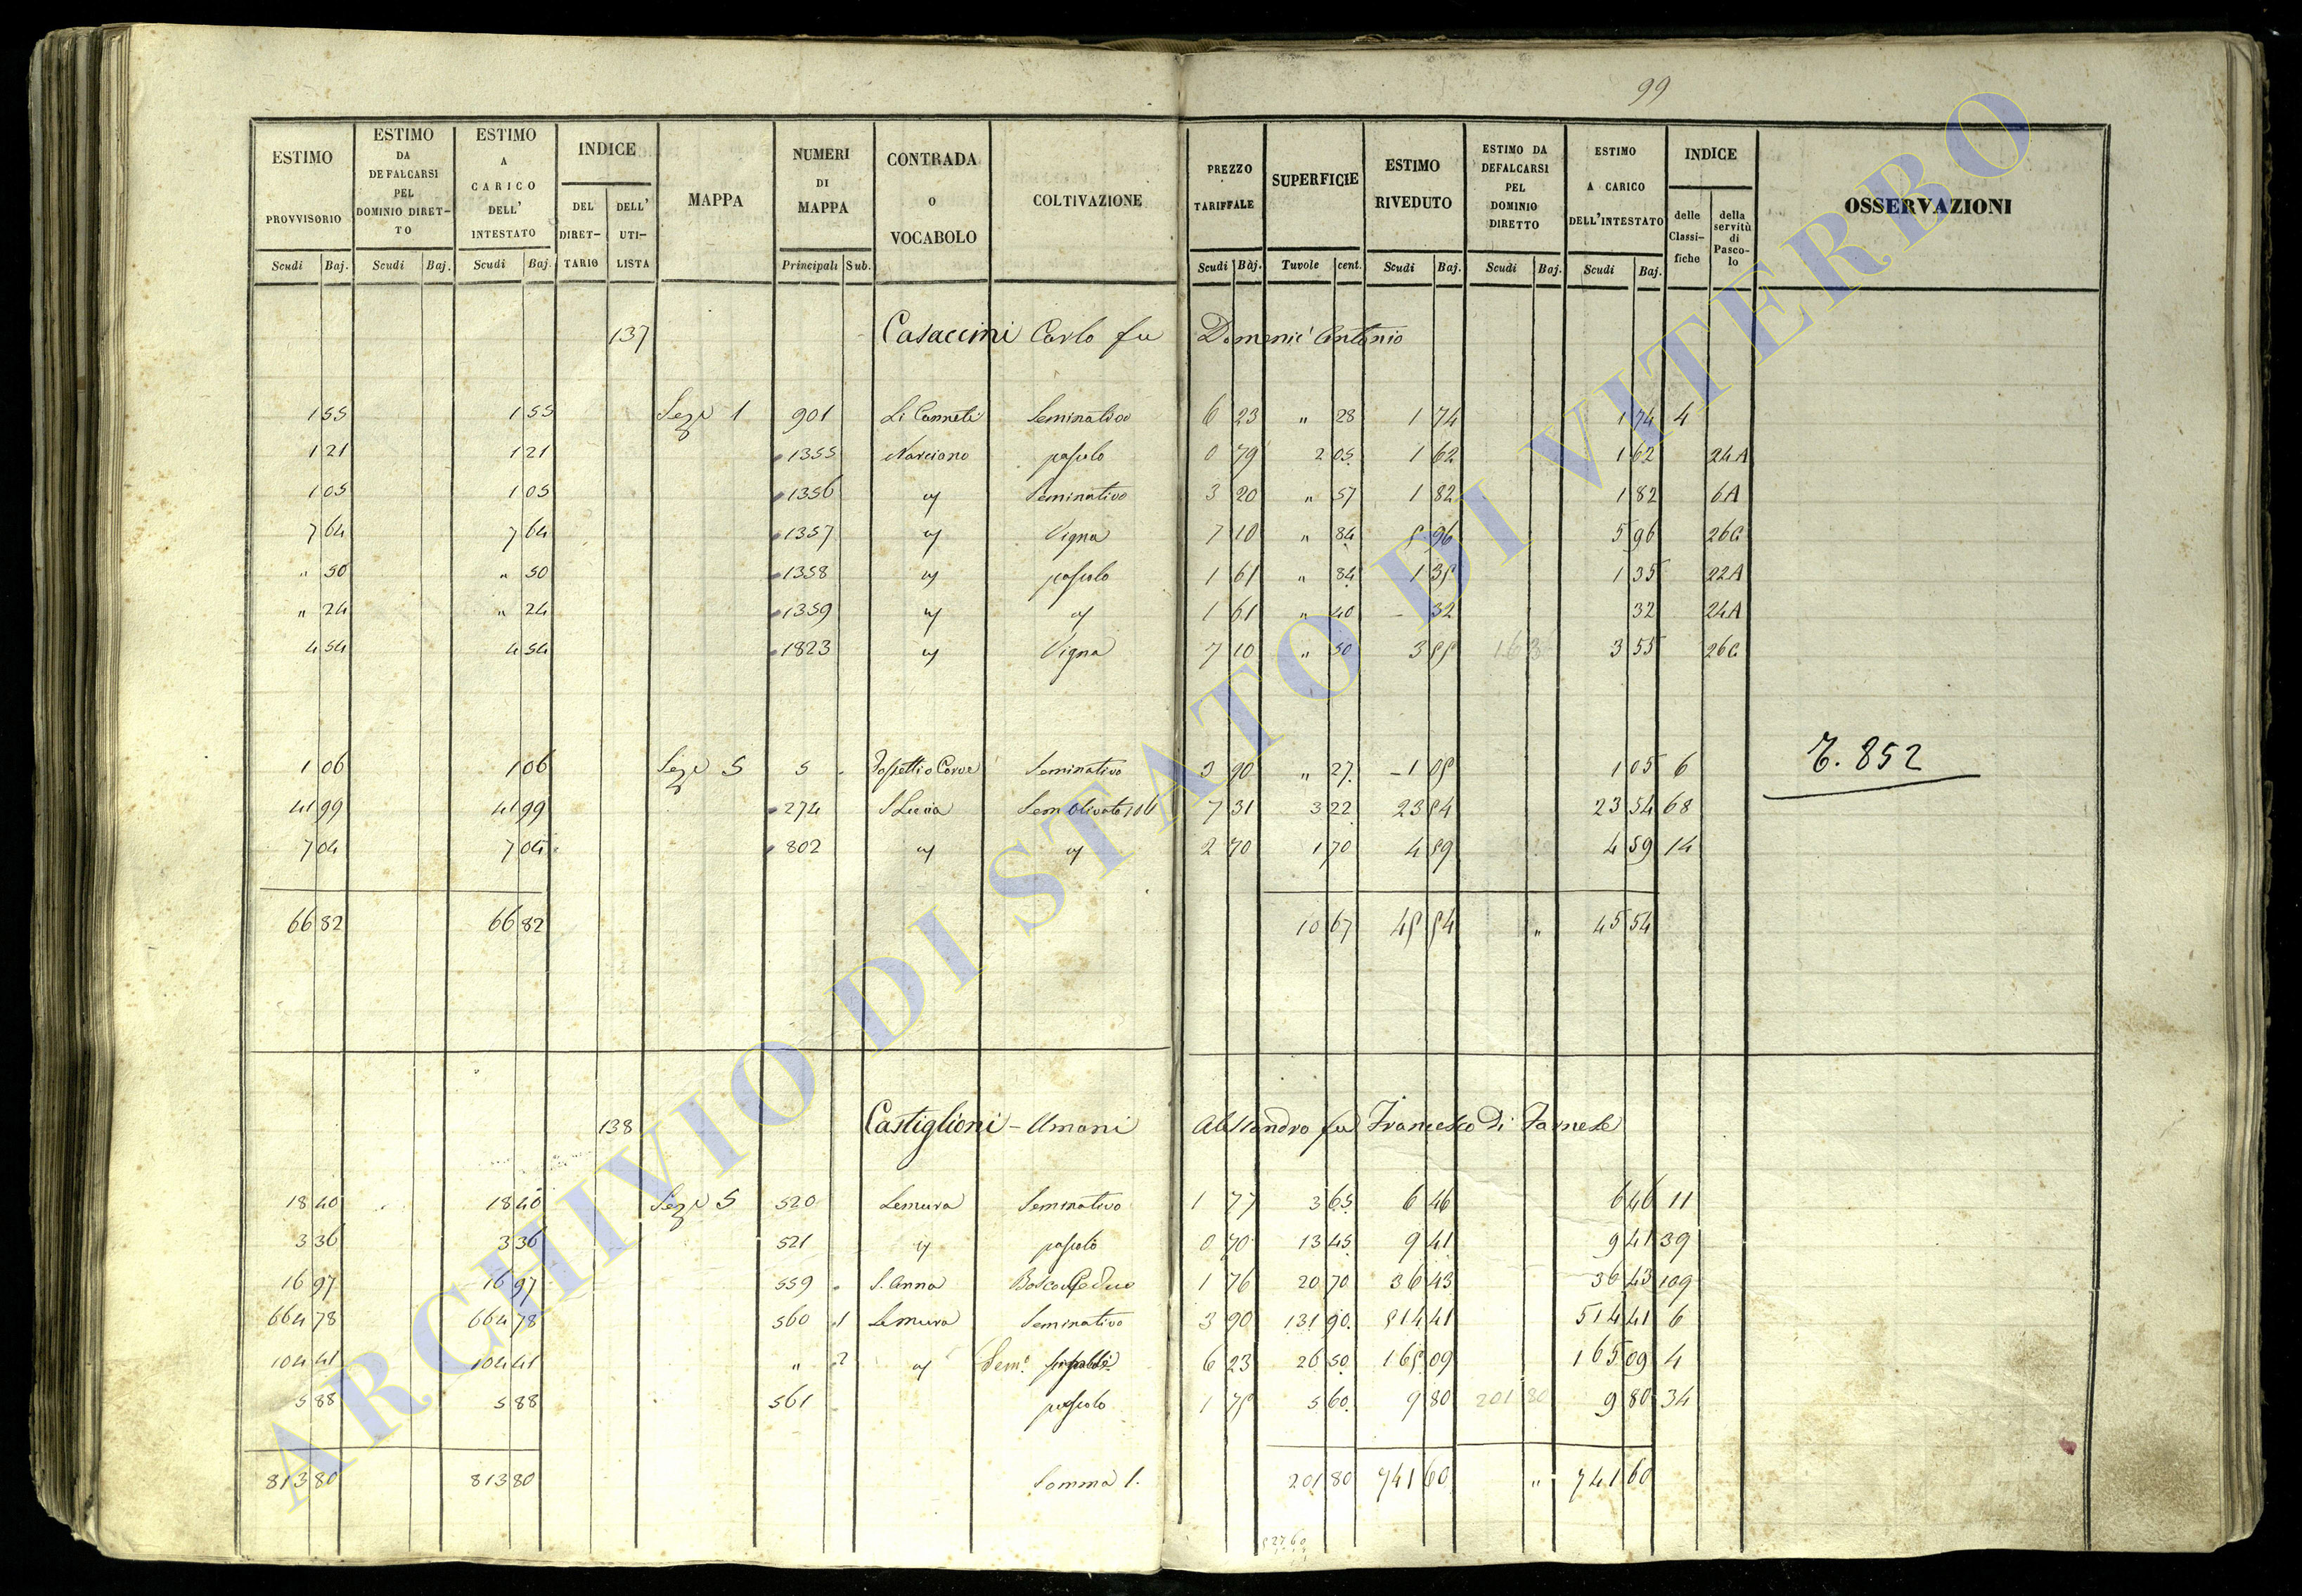 99
ESTIMO PROVVISORIO Scudi Baj.
ESTIMO DA DEFALCARSI PEL DOMINIO DIRETTO Scudi Baj.
ESTIMO A CARICO DELL' INTESTATO Scudi Baj.
INDICE DEL DIRETTARIO DELL' UTILISTA
MAPPA
NUMERI DI MAPPA Principali Sub.
CONTRADA O VOCABOLO
COLTIVAZIONE
PREZZO TARIFFALE Scudi Baj.
SUPERFICIE Tavole cent.
ESTIMO RIVEDUTO Scudi Baj.
ESTIMO DA DEFALCARSI PEL DOMINIO DIRETTO Scudi Baj.
ESTIMO A CARICO DELL'INTESTATO Scudi Baj.
INDICE delle Classifiche della servitù di Pascolo
OSSERVAZIONI
137 Casaccini Carlo fu Domenic' Antonio
1 55 1 55 Sez. 1 901 Li Canneti Seminativo 6 23 " 28 1 74 1 74 4
1 21 1 21 1355 Narciano pascolo 0 79 2 05 1 62 1 62 24A
1 05 1 05 1356 " Seminativo 3 20 " 57 1 82 1 82 6A
7 64 7 64 1357 " Vigna 7 10 " 84 5 96 5 96 26C
" 50 " 50 1358 " pascolo 1 61 " 84 1 35 1 35 22A
" 24 " 24 1359 " " 1 61 " 40 - 32 32 24A
4 54 4 54 1823 " Vigna 7 10 " 50 3 55 3 55 26C
1 06 1 06 Sez. 5 5 Seminativo 3 90 " 27 1 05 1 05 6
T. 852
41 99 41 99 274 S Lucia Sem Olivato 7 31 3 22 23 54 23 54 68
7 04 7 04 802 " " 2 70 1 70 4 59 4 59 14
66 82 66 82 10 67 45 54 " 45 54
138 Castiglioni - Umani Alessandro fu Francesco Di Farnese
18 40 18 40 Sez. 5 520 Lemura Seminativo 1 77 3 65 6 46 6 46 11
3 36 3 36 521 " pascolo 0 70 13 45 9 41 9 41 39
16 97 16 97 559 S. Anna Bosco Ceduo 1 76 20 70 36 43 36 43 109
664 78 664 78 560 1 Lemura Seminativo 3 90 131 90 514 41 514 41 6
104 41 104 41 " 2 " Sem. 6 23 26 50 165 09 165 09 4
5 88 5 88 561 pascolo 1 75 5 60 9 80 201 80 9 80 34
813 80 813 80 Somma 1. 201 80 741 60 " 741 60
ARCHIVIO DI STATO DI VITERBO